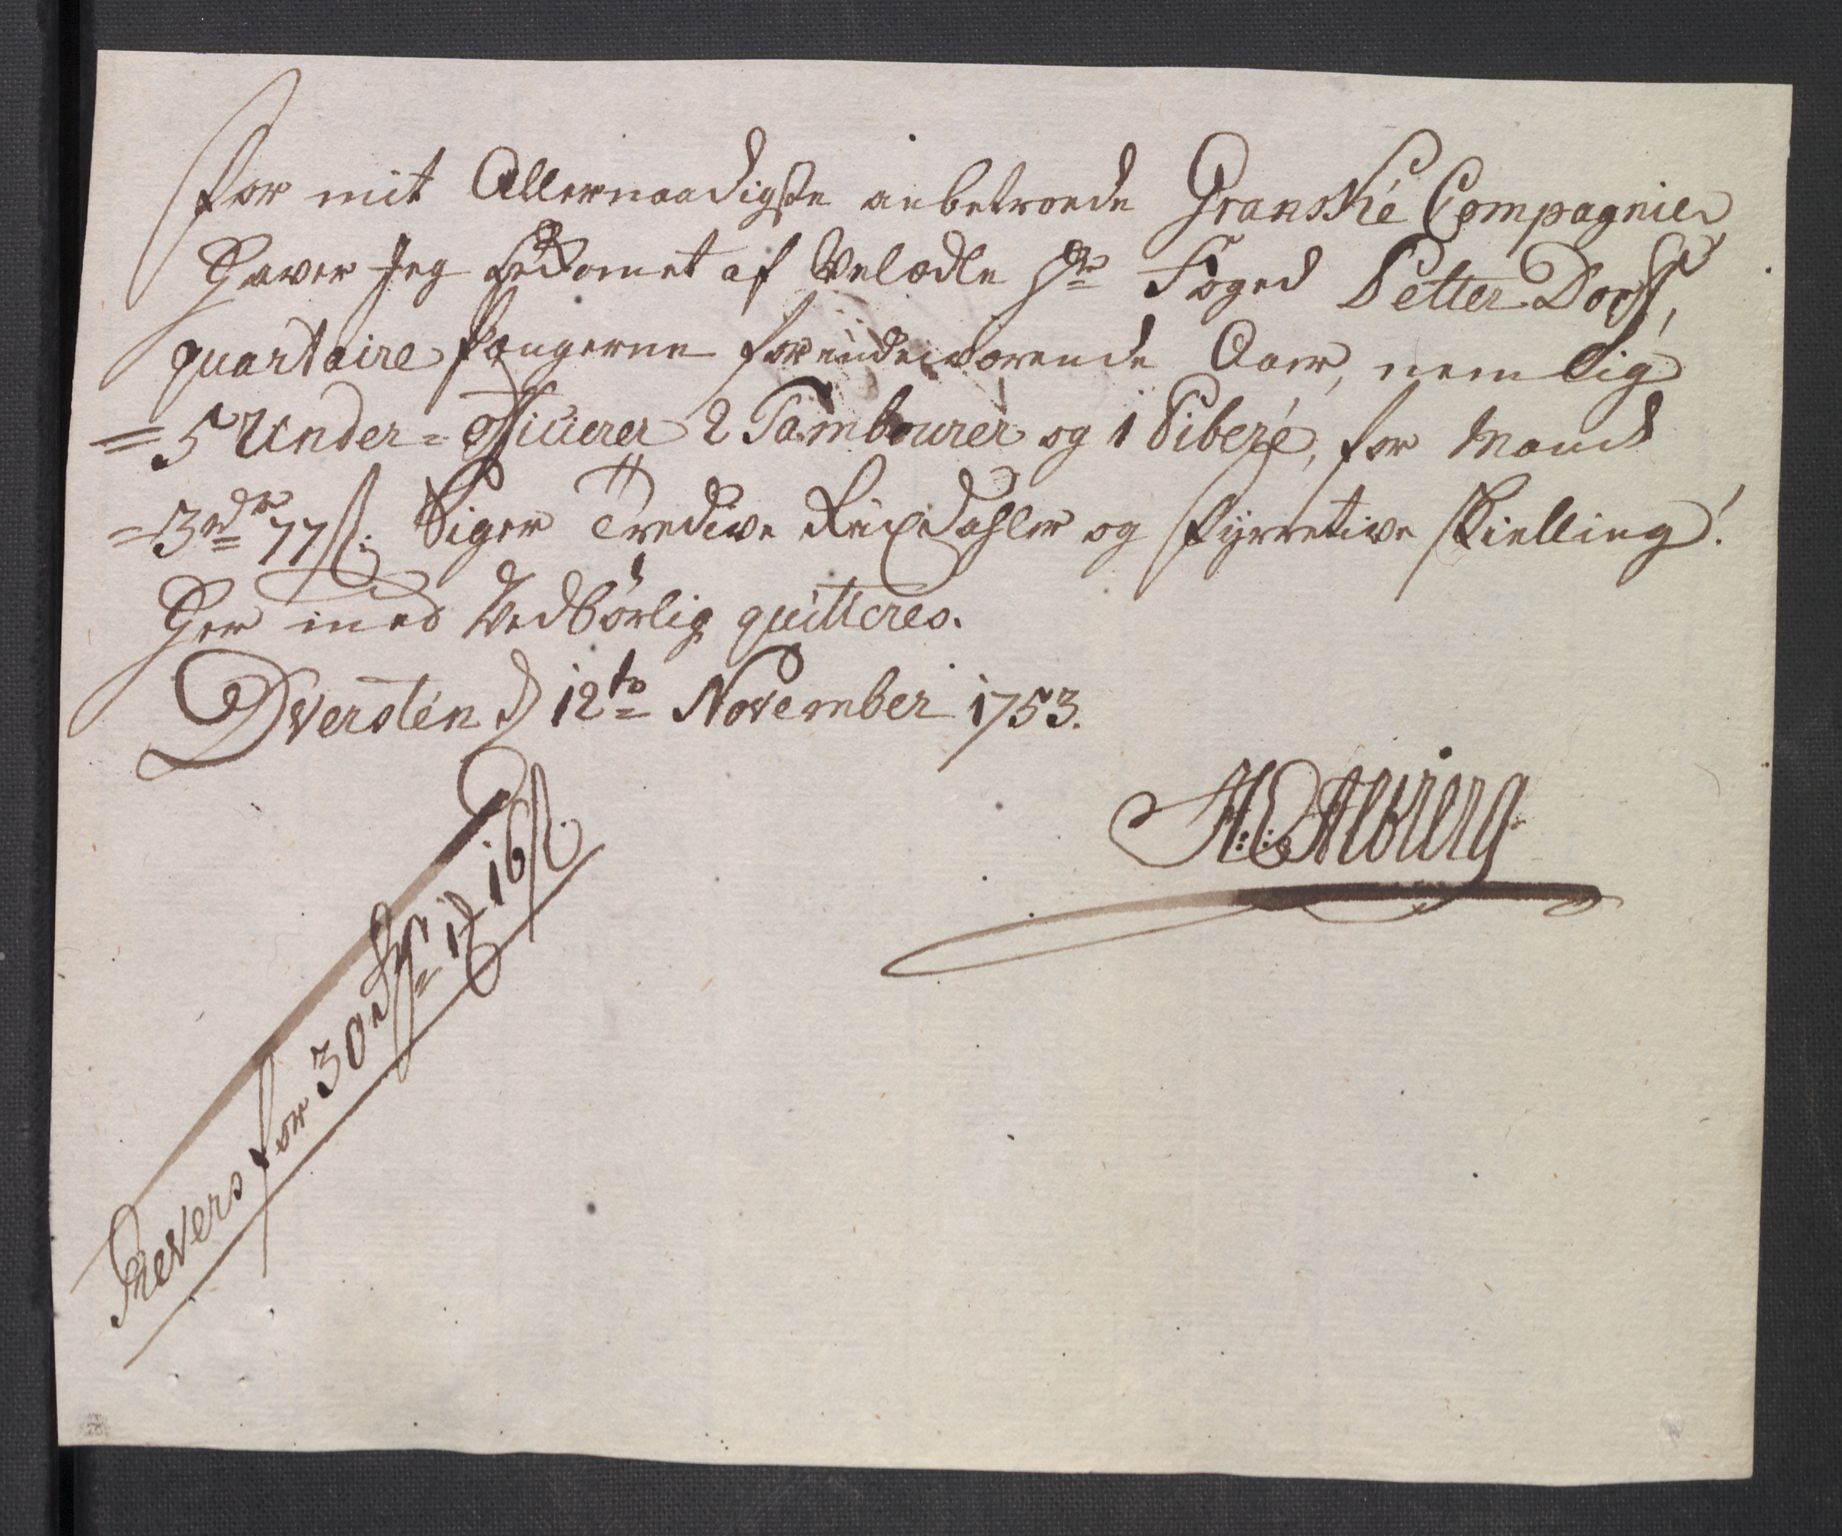 For mit Allernaadigste anbetroede Granske Compagnie
Haver Jeg bekomet af Velædle Hr Foged Petter Dorff,
quarteire pengerne for inde værende Aar, nemlig
= 5 Under=officierer 2 Tambourer og 1 Pibere, for Mand
= 3 rdr 77 s: Siger Tredive Rixdahler og fyrretive skielling!
Her med Vedbørlig quitteres.
Dversten d 12te November 1753.
Revers for 30 1 16 s.